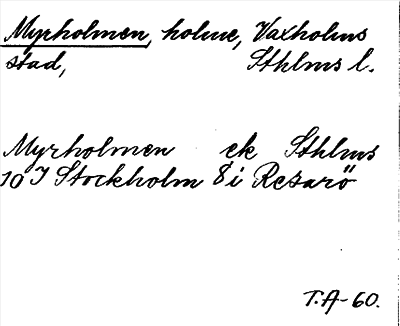 Myrholmen, holme, Vaxholms
stad, Sthlms l.
Myrholmen ek Sthlms
10 I Stockholm 8 i Resarö
T.A-60.